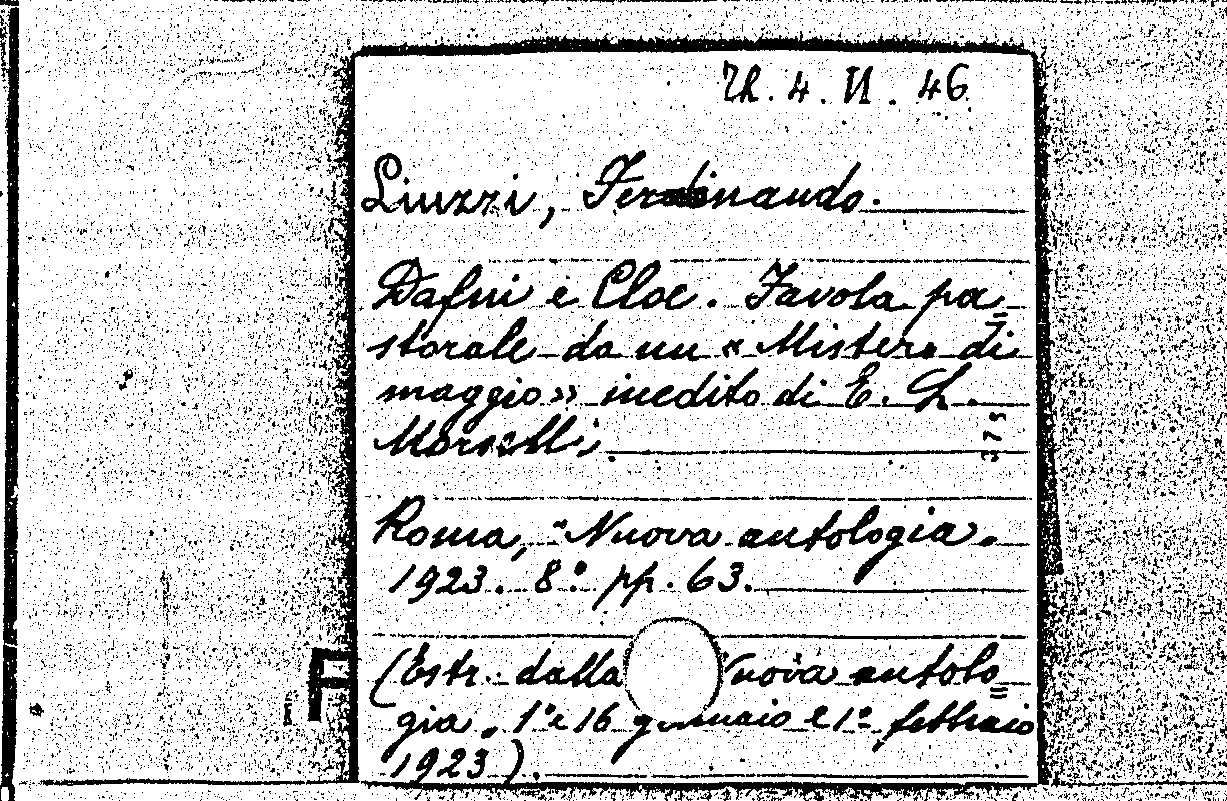 Th. 4. VI. 46
Liuzzi, Ferdinando.
Dafni e Cloe. Favola pa=
storale da un « Mistero di
maggio» inedito di E. L.
Morselli.
373
Roma, "Nuova antologia„
1923. 8.° pp. 63.
(Estr. dalla Nuova antolo=
gia„ 1° e 16 gennaio e 1° febbraio
1923).